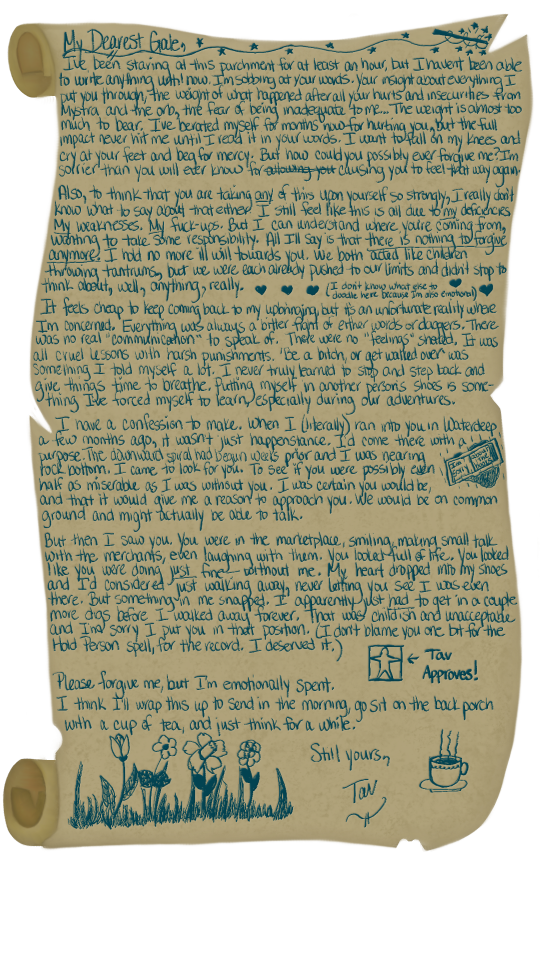 My Dearest Gale,
I've been staring at this parchment for at least an hour, but I haven't been able
to write anything until now. I'm sobbing at your words. Your insight about everything I
put you through, the weight of what happened after all your hurts and insecurities from
Mystra and the orb, the fear of being inadequate to me... The weight is almost too
much to bear. I've berated myself for months now for hurting you, but the full
impact never hit me until I read it in your words. I want to fall on my knees and
cry at your feet and beg for mercy. But how could you possibly ever forgive me? I'm
sorrier than you will ever know for allowing you causing you to feel that way again.
Also, to think that you are taking any of this upon yourself so strongly, I really don't
know what to say about that either. I still feel like this is all due to my deficiencies
My weaknesses. My fuck-ups. But I can understand where you're coming from,
wanting to take some responsibility. All I'll say is that there is nothing to forgive
anymore! I hold no more ill will towards you. We both acted like children
throwing tantrums, but we were each already pushed to our limits and didn't stop to
think about, well, anything, really.
(I don't know what else to
doodle here because I'm also emotional)
It feels cheap to keep coming back to my upbringing, but it's an unfortunate reality where
I'm concerned. Everything was always a bitter fight of either words or daggers. There
was no real "communication" to speak of. There were no "feelings" shared. It was
all cruel lessons with harsh punishments. 'Be a bitch, or get walked over' was
something I told myself a lot. I never truly learned to stop and step back and
give things time to breathe. Putting myself in another person's shoes is some-
thing I've forced myself to learn, especially during our adventures.
I have a confession to make. When I (literally) ran into you in Waterdeep
a few months ago, it wasn't just happenstance. I'd come there with a
purpose. The downward spiral had begun weeks prior and I was nearing
rock bottom. I came to look for you. To see if you were possibly even
half as miserable as I was without you. I was certain you would be,
and that it would give me a reason to approach you. We would be on common
ground and might actually be able to talk.
I'm
sorry about the
But then I saw you. You were in the marketplace, smiling, making small talk
with the merchants, even laughing with them. You looked full of life. You looked
like you were doing just fine – without me. My heart dropped into my shoes
and I'd considered just walking away, never letting you see I was even
there. But something in me snapped. I apparently just had to get in a couple
more digs before I walked away forever. That was childish and unacceptable
and I'm sorry I put you in that position. (I don't blame you one bit for the
Hold Person spell, for the record. I deserved it.)
← Tav
Approves!
Please forgive me, but I'm emotionally spent.
I think I'll wrap this up to send in the morning, go sit on the back porch
with a cup of tea, and just think for a while.
Still yours,
Tav